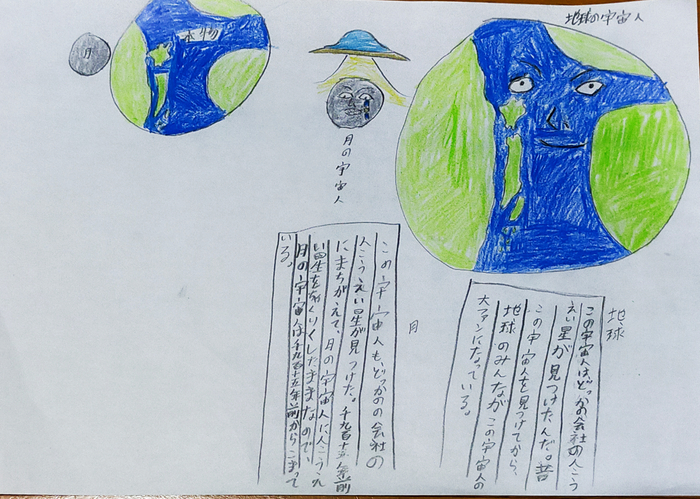 地球の宇宙人
本物
月
月の宇宙人
地球
この宇宙人はどっかの会社の人こう
えい星が見つけたんだ。昔
この宇宙人を見つけてから、
地球のみんながこの宇宙人の
大ファンになっている。
月
この宇宙人も、どっかのの会社の
人こうえい星が見つけた。千九百十五年前
にまちがえて、月の宇宙人に人こうえ
い星をしたままなので、
月の宇宙人は千九百十五年前からこまって
いる。